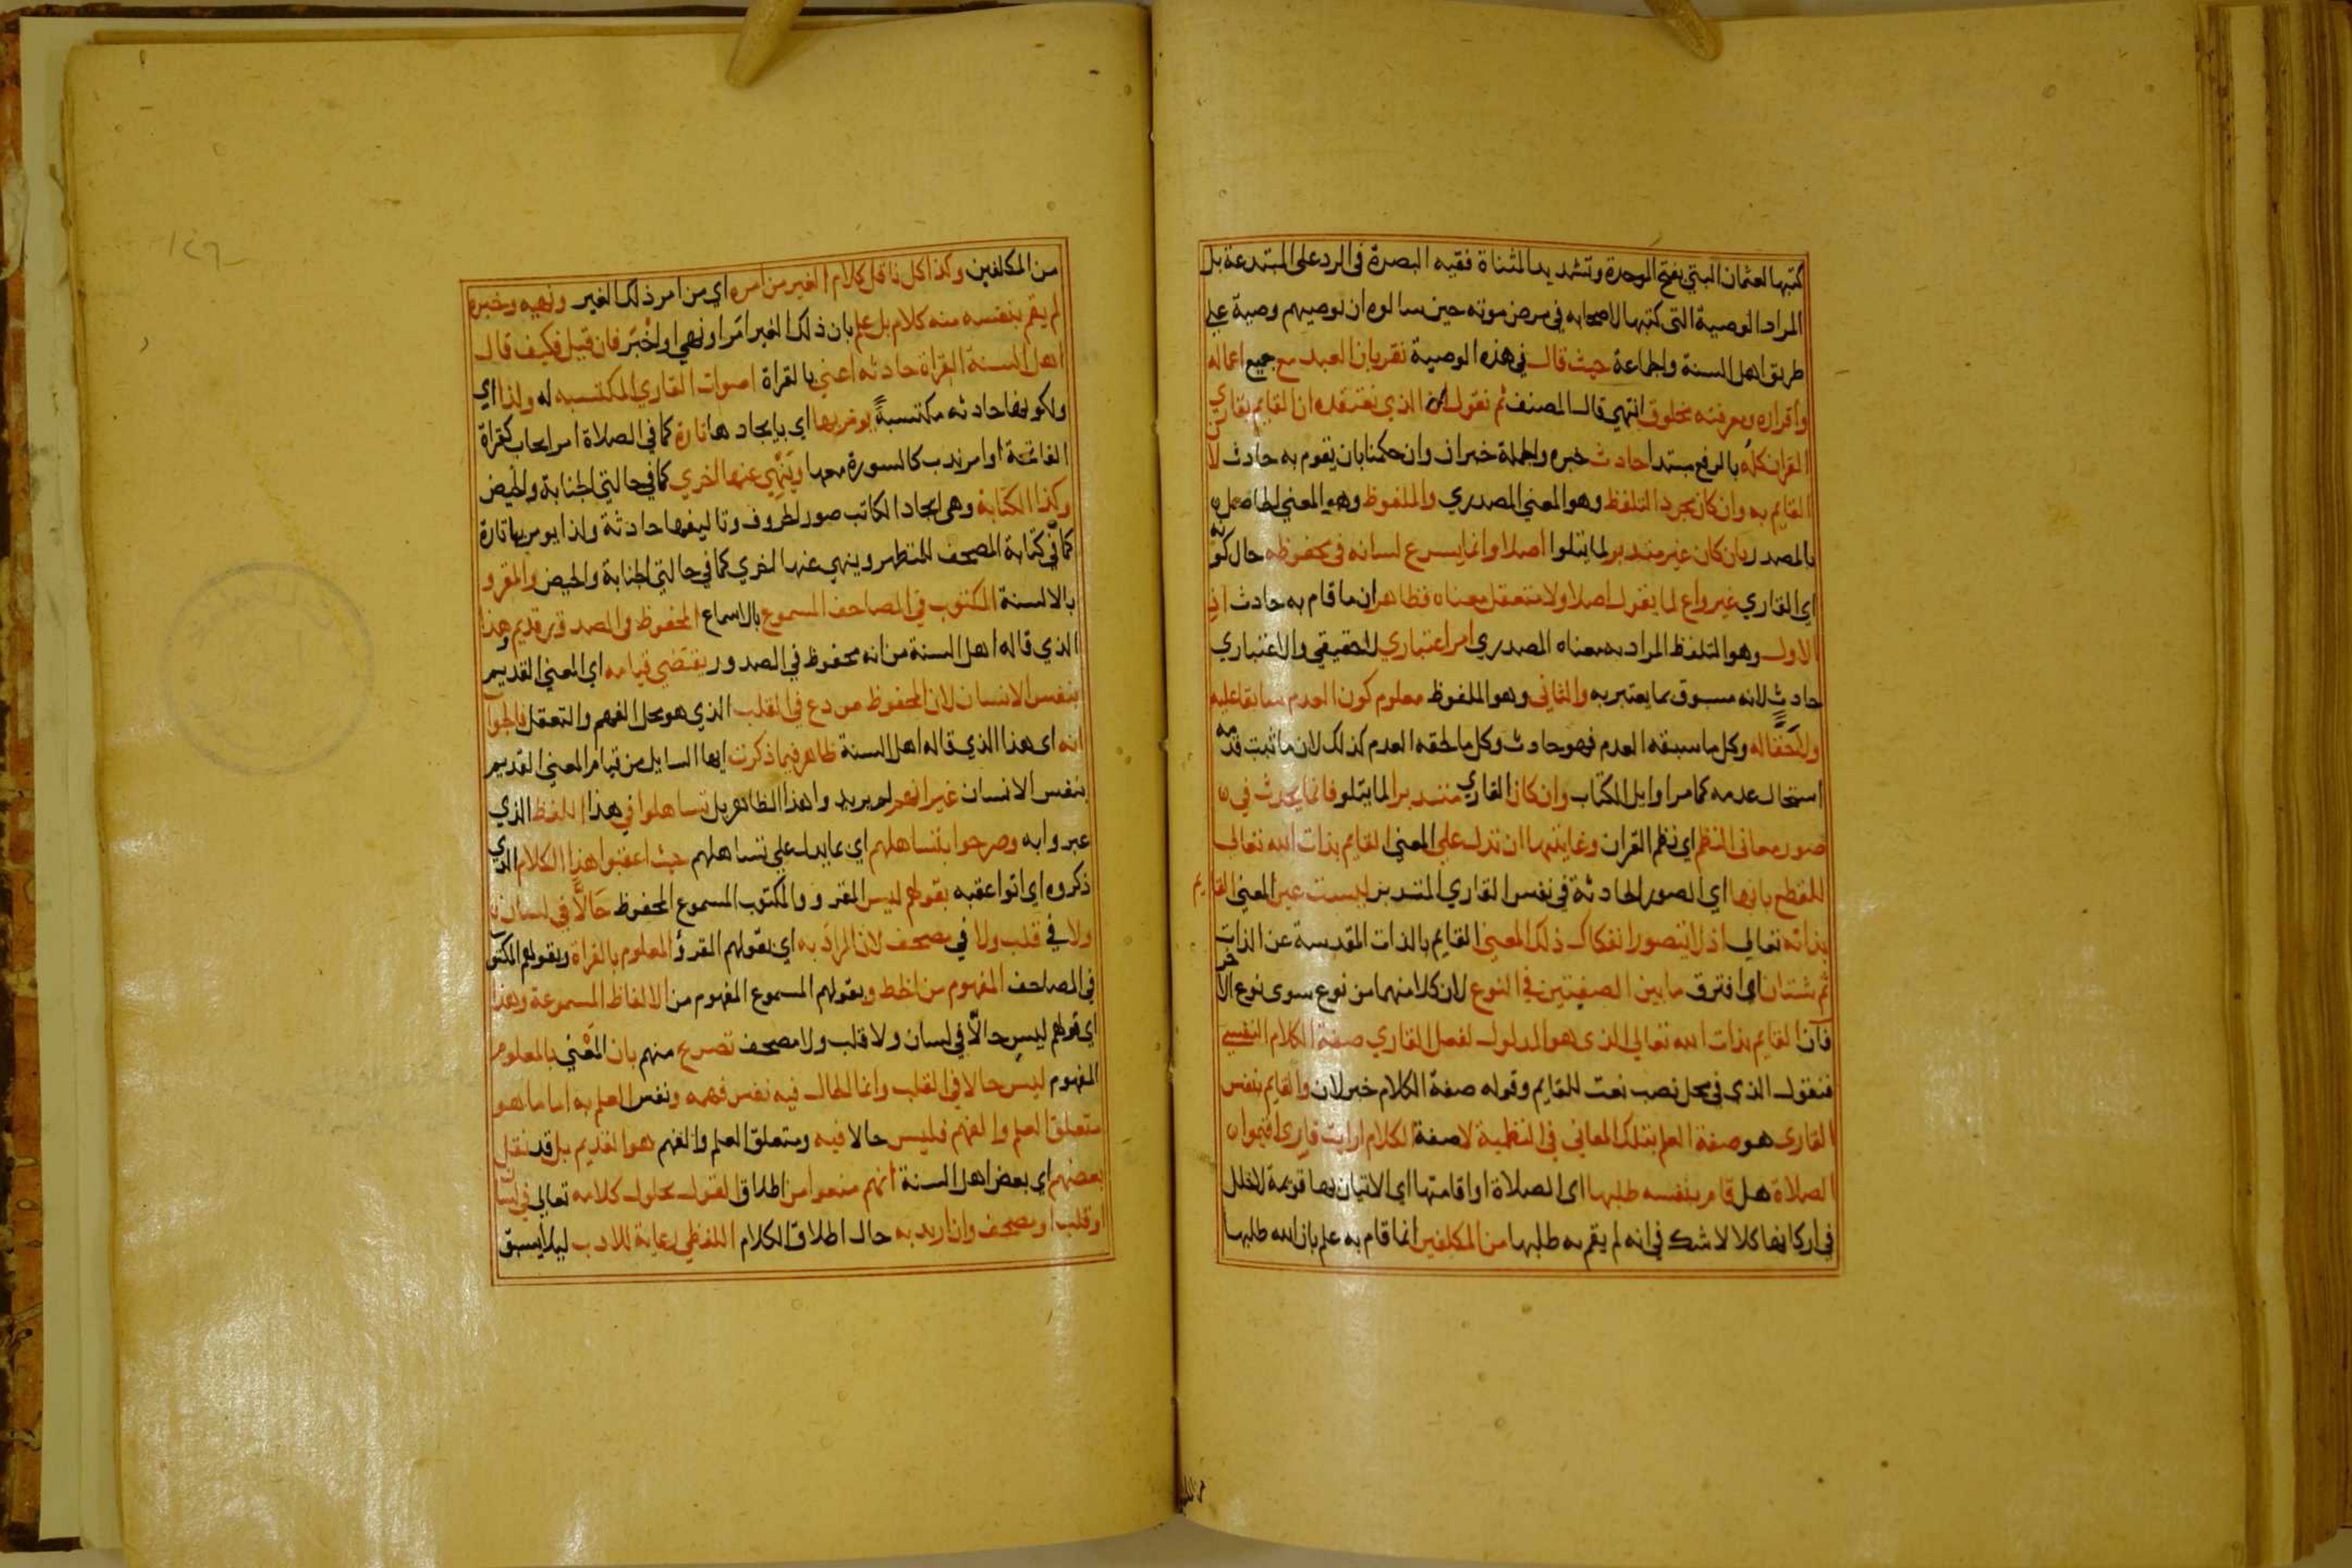 كتبها لعثمان البتي بفتح الموحدة وتشديد المثناة فقيه البصرة في الرد على المبتدعة بل
المراد الوصية التي كتبها لاصحابه في مرض موته حين سالوه ان يوصيهم وصية على
طريق اهل السنة والجماعة حيث قال في هذه الوصية نقر بان العبد مع جميع اعماله
واقراره ومعرفته مخلوق انتهي قال المصنف ثم نقول الذي نعتقده ان القايم بقاري
القران كله بالرفع مبتدا حادث خبره والجملة خبر ان وان حكمنا بان يقوم به حادث لان
القايم به وان كان مجرد التلفظ وهو المعني المصدري والملفوظ وهو المعني الحاصل
بالمصدر بان كان غير متدبر لما يتلوا اصلا وانما يسرع لسانه في محفوظه حال كونه
اي القاري غير واع لما يقول اصلا ولا متعقل معناه فظاهر ان ما قام به حادث اذ
الاول وهو التلفظ المراد به معناه المصدري امر اعتباري لا حقيقي والاعتباري
حادث لانه مسبوق بما يعتبر به والثاني وهو الملفوظ معلوم كون العدم سابقا عليه
ولاحقا له وكل ما سبقه العدم فهو حادث وكل ما لحقه العدم كذلك لان ما ثبت قدمه
استحال عدمه كما مر اوايل الكتاب وان كان القاري متدبرا لما يتلو فانما يحدث في
صور معاني النظم اي نظم القران وغايتها ان تدل علي المعني القايم بذات الله تعالي
للقطع بانها اي الصور الحادثة في نفس القاري المتدبر ليست عين المعني القايم
بذاته تعالي اذ لا يتصور انفكاك ذلك المعني القايم بالذات المقدسة عن الذات
ثم شتان اي افترق ما بين الصفتين في النوع لان كلا منهما من نوع سوي نوع الاخر
فان القايم بذات الله تعالي الذي هو المدلول لفعل القاري صفة الكلام النفسي
فنقول الذي في محل نصب نعت للقايم وقوله صفة الكلام خبر لان والقايم بنفس
القاري هو صفة العلم بتلك المعاني في النظمية لا صفة الكلام ارايت قاري اقيموا
الصلاة هل قام بنفسه طلبها اي الصلاة او اقامتها اي الاتيان بها قويمة لا خلل
في اركانها كلا لا شك في انه لم يقم به طلبها من المكلفين انما قام به علم بان الله طلبها
من المكلفين وكذا كل ناقل كلام الغير من امره اي من امر ذلك الغير ونهيه وخبره
لم يقم بنفسه منه كلام بل علم بان ذلك الغير امر او نهي او اخبر فان قيل فكيف قال
اهل السنة القراة حادثه اعني بالقراة اصوات القاري المكتسبه له ولذا اي
ولكونها حادثه مكتسبة يومر بها اي بايجادها تارة كما في الصلاة امر ايجاب كقراة
الفاتحة او امر ندب كالسورة معها وينهي عنها اخري كما في حالتي الجنابة والحيض
وكذا الكتابة وهي ايجاد الكاتب صور الحروف وتاليفها حادثة ولذا يومر بها تارة
كما في كتابة المصحف للمتطهر وينهي عنها اخري كما في حالتي الجنابة والحيض والمقرو
بالالسنة المكتوب في المصاحف المسموع بالاسماع المحفوظ في الصدور قديم وهذا
الذي قاله اهل السنة من انه محفوظ في الصدور يقتضي قيامه اي المعني القديم
بنفس الانسان لان المحفوظ مودع في القلب الذي هو محل الفهم والتعقل فالجواب
انه اي هذا الذي قاله اهل السنة ظاهر فيما ذكرت ايها السايل من قيام المعني القديم
بنفس الانسان غير انهم لم يريدوا هذا الظاهر بل تساهلوا في هذا اللفظ الذي
عبروا به وصرحوا بتساهلهم اي بما يدل علي تساهلهم حيث اعقبوا هذا الكلام الذي
ذكروه اي اتوا عقبه بقولهم ليس المقرو والمكتوب المسموع المحفوظ حالا في لسان
ولا في قلب ولا في مصحف لان المراد به اي بقولهم المقرؤ المعلوم بالقراة وبقولهم المكتوب
في المصاحف المفهوم من الخط وبقولهم المسموع المفهوم من الالفاظ المسموعة وهذا
اي قولهم ليس حالا في لسان ولا قلب ولا مصحف تصرح منهم بان المعني بالمعلوم
المفهوم ليس حالا في القلب وانما الحال فيه نفس فهمه ونفس العلم به اما ما هو
متعلق العلم والفهم فليس حالا فيه ومتعلق العلم والفهم هو القديم بل قد نقل
بعضهم اي بعض اهل السنة انهم منعوا من اطلاق القول بحلول كلامه تعالي في لسان
او قلب او مصحف وان اريد به حال اطلاق الكلام اللفظي رعاية للادب ليلا يسبق